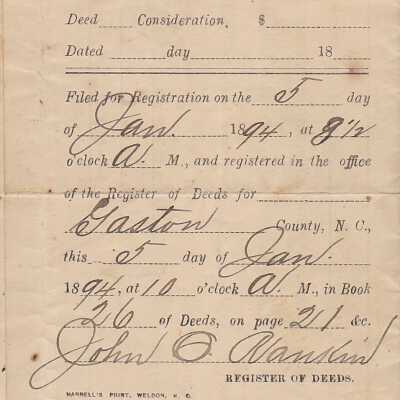 Deed Consideration, $
Dated day 18
Filed for Registration on the 5 day
of Jan. 1894, at 9 1/2
o'clock A. M., and registered in the office
of the Register of Deeds for
Gaston County, N. C.,
this 5 day of Jan.
1894, at 10 o'clock A. M., in Book
26 of Deeds, on page 21 &c.
John O. Rankin
REGISTER OF DEEDS.
HARRELL'S PRINT, WELDON, N. C.